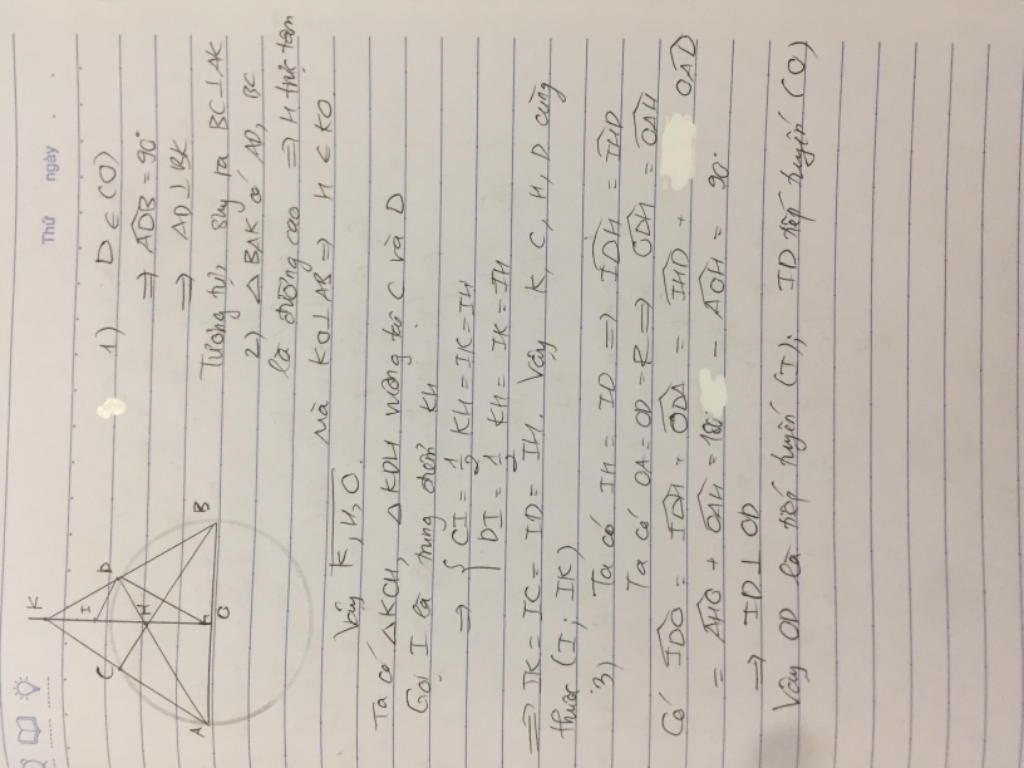 Thứ ngày
K
I
C
D
H
A
O
B
1) D ∈ (O)
=> ADB = 90°
=> AD ⊥ BK
Tương tự, suy ra BC ⊥ AK
2) △BAK có AD, BC
là đường cao => H trực tâm
mà KO ⊥ AB => H ∈ KO
Vậy K, H, O
Ta có △KCH, △KDH vuông tại C và D
Gọi I là trung điểm KH
=> { CI = 1/2 KH = IK = IH
DI = 1/2 KH = IK = IH
=> IK = IC = ID = IH. Vậy K, C, H, D cùng
thuộc (I; IK)
3) Ta có IH = ID => IDH = IHD
Ta có OA = OD = R => ODH = OAH
Có IDO = IDH + ODA = IHD + OAD
= AHO + OAH = 180 - AOH = 90°
=> ID ⊥ OD
Vậy OD là tiếp tuyến (I); ID tiếp tuyến (O)